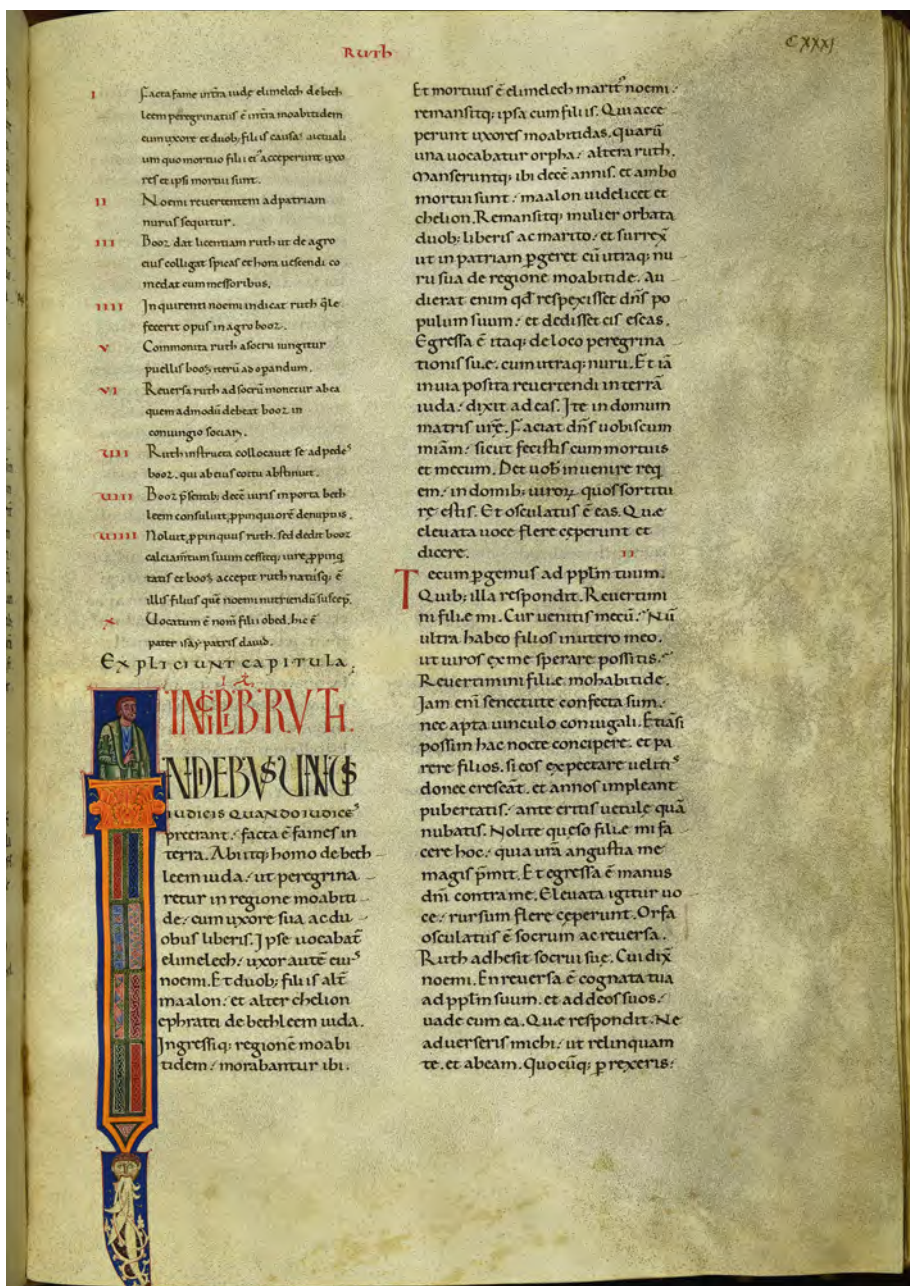 RUTh
CXXXJ
I Facta fame intra iudę elimelech de beth
leem peregrinatus ē intra moabitidem
cum uxore et duob; filiis causa uictuali
um quo mortuo filii ei᷒ acceperunt uxo
res et ipsi mortui sunt.
II Noemi reuertentem ad patriam
nurus sequitur.
III Booz dat licentiam ruth ut de agro
eius colligat spicas et hora uescendi co
medat cum messoribus.
IIII Inquirenti noemi indicat ruth q̄le
fecerit opus in agro booz.
V Commonita ruth a socru iungitur
puellis booz ad opandum.
VI Reuersa ruth ad socrū monetur ab ea
quem admodū debeat booz in
coniungio sociari.
VII Ruth instructa collocauit se ad pedeˢ
booz. qui ab eius coitu abstinuit.
VIII Booz p̄sentib; decē uiris in porta beth
leem consuluit ꝓpinquiorē
VIIII Noluit ꝓpinquus ruth. sed dedit booz
calciam̄tum suum cessitq; iure ꝓpinq
tatis et booz accepit ruth natusq; ē
illis filius quē noemi nutriendū suscep̄.
X Uocatum ē nom̄ filii obed. hic ē
pater isay patris dauid.
Expliciunt capitula.
INCIPIT LIB RUTH.
IN DIEBUS UNIUS
IUDICIS QUANDO IUDICES
preerant. facta ē fames in
terra. Abiitq; homo de beth
leem iuda. ut peregrina
retur in regione moabiti
de. cum uxore sua ac du
obus liberis. Ipse uocabat̄
elimelech. uxor autē eiuˢ
noemi. Et duob; filiis alt̄
maalon. et alter chelion
ephratei de bethleem iuda.
Ingressiq; regionē moabi
tidem. morabantur ibi.
Et mortuus ē elimelech marit᷒ noemi.
remansitq; ipsa cum filiis. Qui acce
perunt uxores moabitidas. quarū
una uocabatur orpha. altera ruth.
Manseruntq; ibi decē annis. et ambo
mortui sunt. maalon uidelicet et
chelion. Remansitq; mulier orbata
duob; liberis ac marito. et surrex̄
ut in patriam ꝑgeret cū utraq; nu
ru sua de regione moabitide. Au
dierat enim qđ respexisset dn̄s po
pulum suum. et dedisset eis escas.
Egressa ē itaq; de loco peregrina
tionis suę. cum utraq; nuru. Et iā
in uia posita reuertendi in terrā
iuda. dixit ad eas. Ite in domum
matris ur̄ę. Faciat dn̄s uobiscum
miām. sicut fecistis cum mortuis
et mecum. Det uob̄ inuenire req
em. in domib; uiroꝝ quos sortitu
rę estis. Et osculatus ē eas. Quę
eleuata uoce flere cęperunt et
dicere. II
Tecum ꝑgemus ad pplm̄ tuum.
Quib; illa respondit. Reuertimi
ni filię mi. Cur uenitis mecū. Nū
ultra habeo filios in utero meo.
ut uiros ex me sperare possitis.
Reuertimini filię mohabitide.
Jam eni senectute confecta sum.
nec apta uinculo coniugali. Etiāsi
possim hac nocte concipere. et pa
rere filios. si eos expectare uelitiˢ
donec crescāt. et annos impleant
pubertatis. ante eritis uetule quā
nubatis. Nolite queso filię mi fa
cere hoc. quia urā angustia me
magis p̄mit. Et egressa ē manus
dn̄i contra me. Eleuata igitur uo
ce. rursum flere cęperunt. Orfa
osculatus ē socrum ac reuersa.
Ruth adhesit socrui suę. Cui dix̄
noemi. En reuersa ē cognata tua
ad pplm̄ suum. et ad deos suos.
uade cum ea. Quę respondit. Ne
aduerseris michi. ut relinquam
te. et abeam. Quocūq; ꝑrexeris.